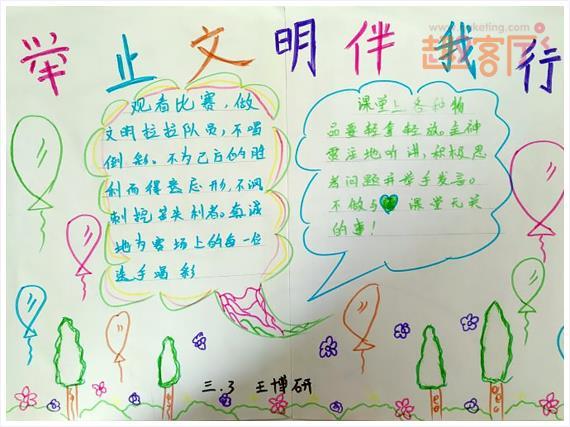 www.pinketing.com
趣客网
举止文明伴我行
观看比赛，做
文明拉拉队员，不喝
倒彩。不为己方的胜
利而得意忘形，不讽
刺挖苦失利者。真诚
地为赛场上的每一位
选手喝彩
课堂上各种物
品要轻拿轻放。全神
贯注地听讲，积极思
考问题并举手发言。
不做与课堂无关
的事！
三.3 王博研